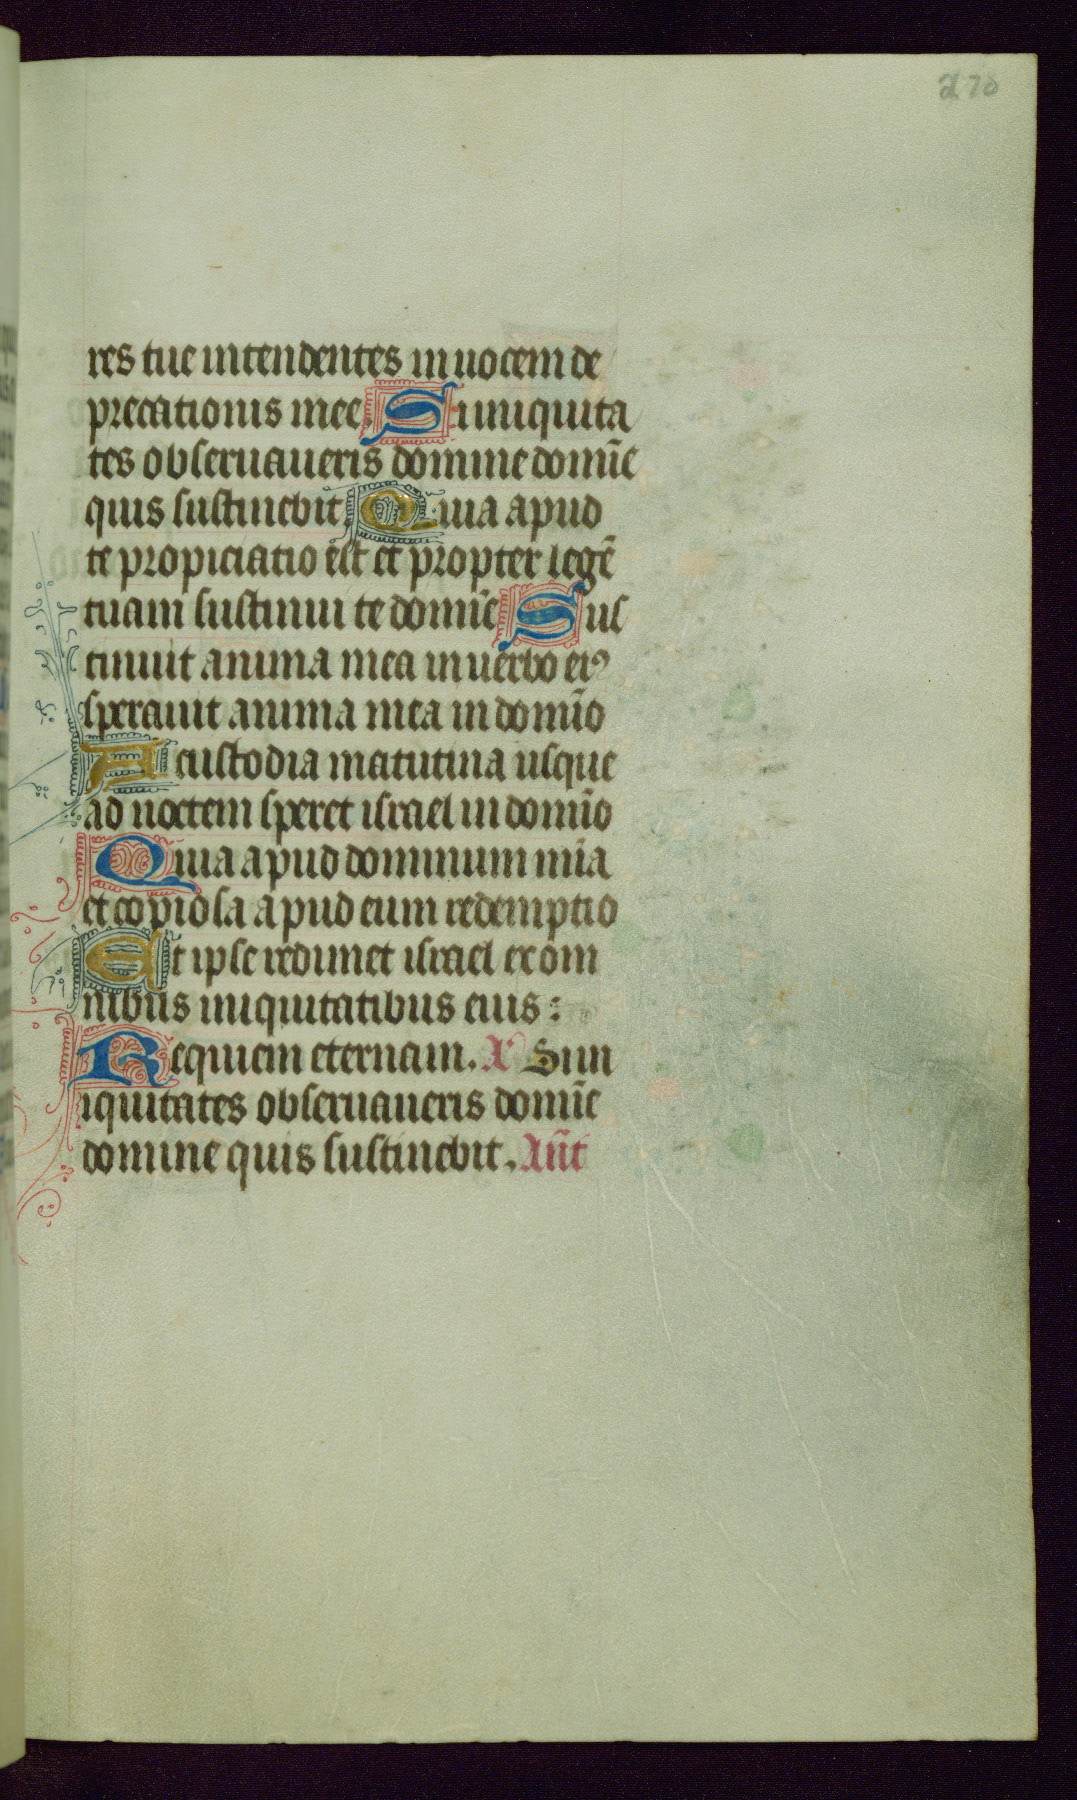 270
res tue intendentes in uocem de
precationis mee. Si iniquita
tes obseruaueris domine domīe
quis sustinebit. Quia apud
te propiciatio est et propter legē
tuam sustinui te domīe Sus
tinuit anima mea in uerbo eiꝰ
sperauit anima mea in domīo
A custodia matutina usque
ad noctem speret israel in domīo
Quia apud dominum mīa
et copiosa apud eum redemptio
Et ipse redimet israel ex om
nibus iniquitatibus eius :
Requiem eternam. Si in
iquitates obseruaueris domīe
domine quis sustinebit. Ant̄